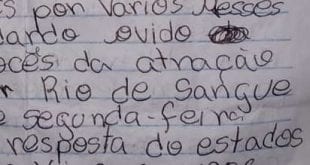 s por varios Messes
dando ovido
ocês da atração
r Rio de Sangue
e segunda-feira
resposta do estados